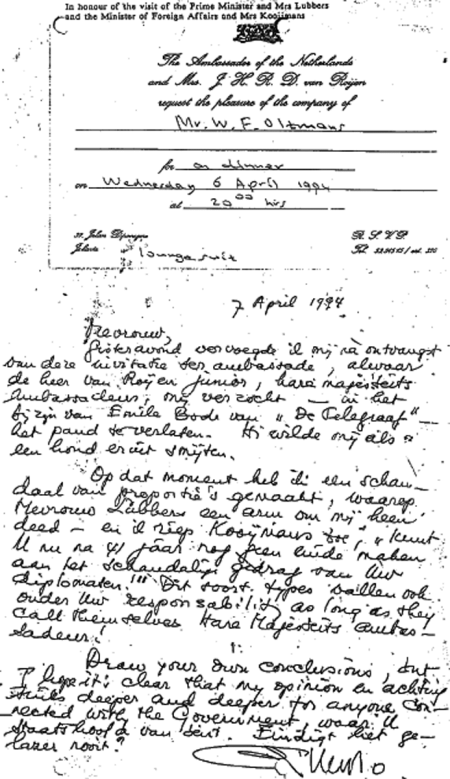 In honour of the visit of the Prime Minister and Mrs Lubbers
and the Minister of Foreign Affairs and Mrs Kooijmans
The Ambassador of the Netherlands
and Mrs. J. H. R. D. van Roijen
request the pleasure of the company of
Mr. W. F. Oltmans
for a dinner
on Wednesday 6 April 1994
at 20.00 hrs
Jalan
R. S. V. P.
lounge suit
7 April 1994
Mevrouw,
Gisteravond vervoegde ik mij na ontvangst
van deze invitatie ter ambassade, alwaar
de heer van Roijen junior, hare majesteits
Ambassadeur, mij verzocht – in het
bijzijn van Emile Bode van "De Telegraaf" –
het pand te verlaten. Hij wilde mij als
een hond eruit smijten.
Op dat moment heb ik een schan-
daal van proportie's gemaakt, waarop
Mevrouw Lubbers een arm om mij heen
deed – en ik riep Kooijmans toe, "kunt
U nu na 41 jaar nog geen einde maken
aan het schandalig gedrag van Uw
diplomaten!!!" Dit soort types vallen ook
onder Uw responsability as long as they
call themselves Hare Majesteits ambas-
sadeur!
Draw your own conclusions, but
I hope it's clear that my opinion en achting
sinks deeper and deeper for anyone con-
nected with the Government, waar U
staatshoofd van bent. Eindigt het ge-
lazer nooit?